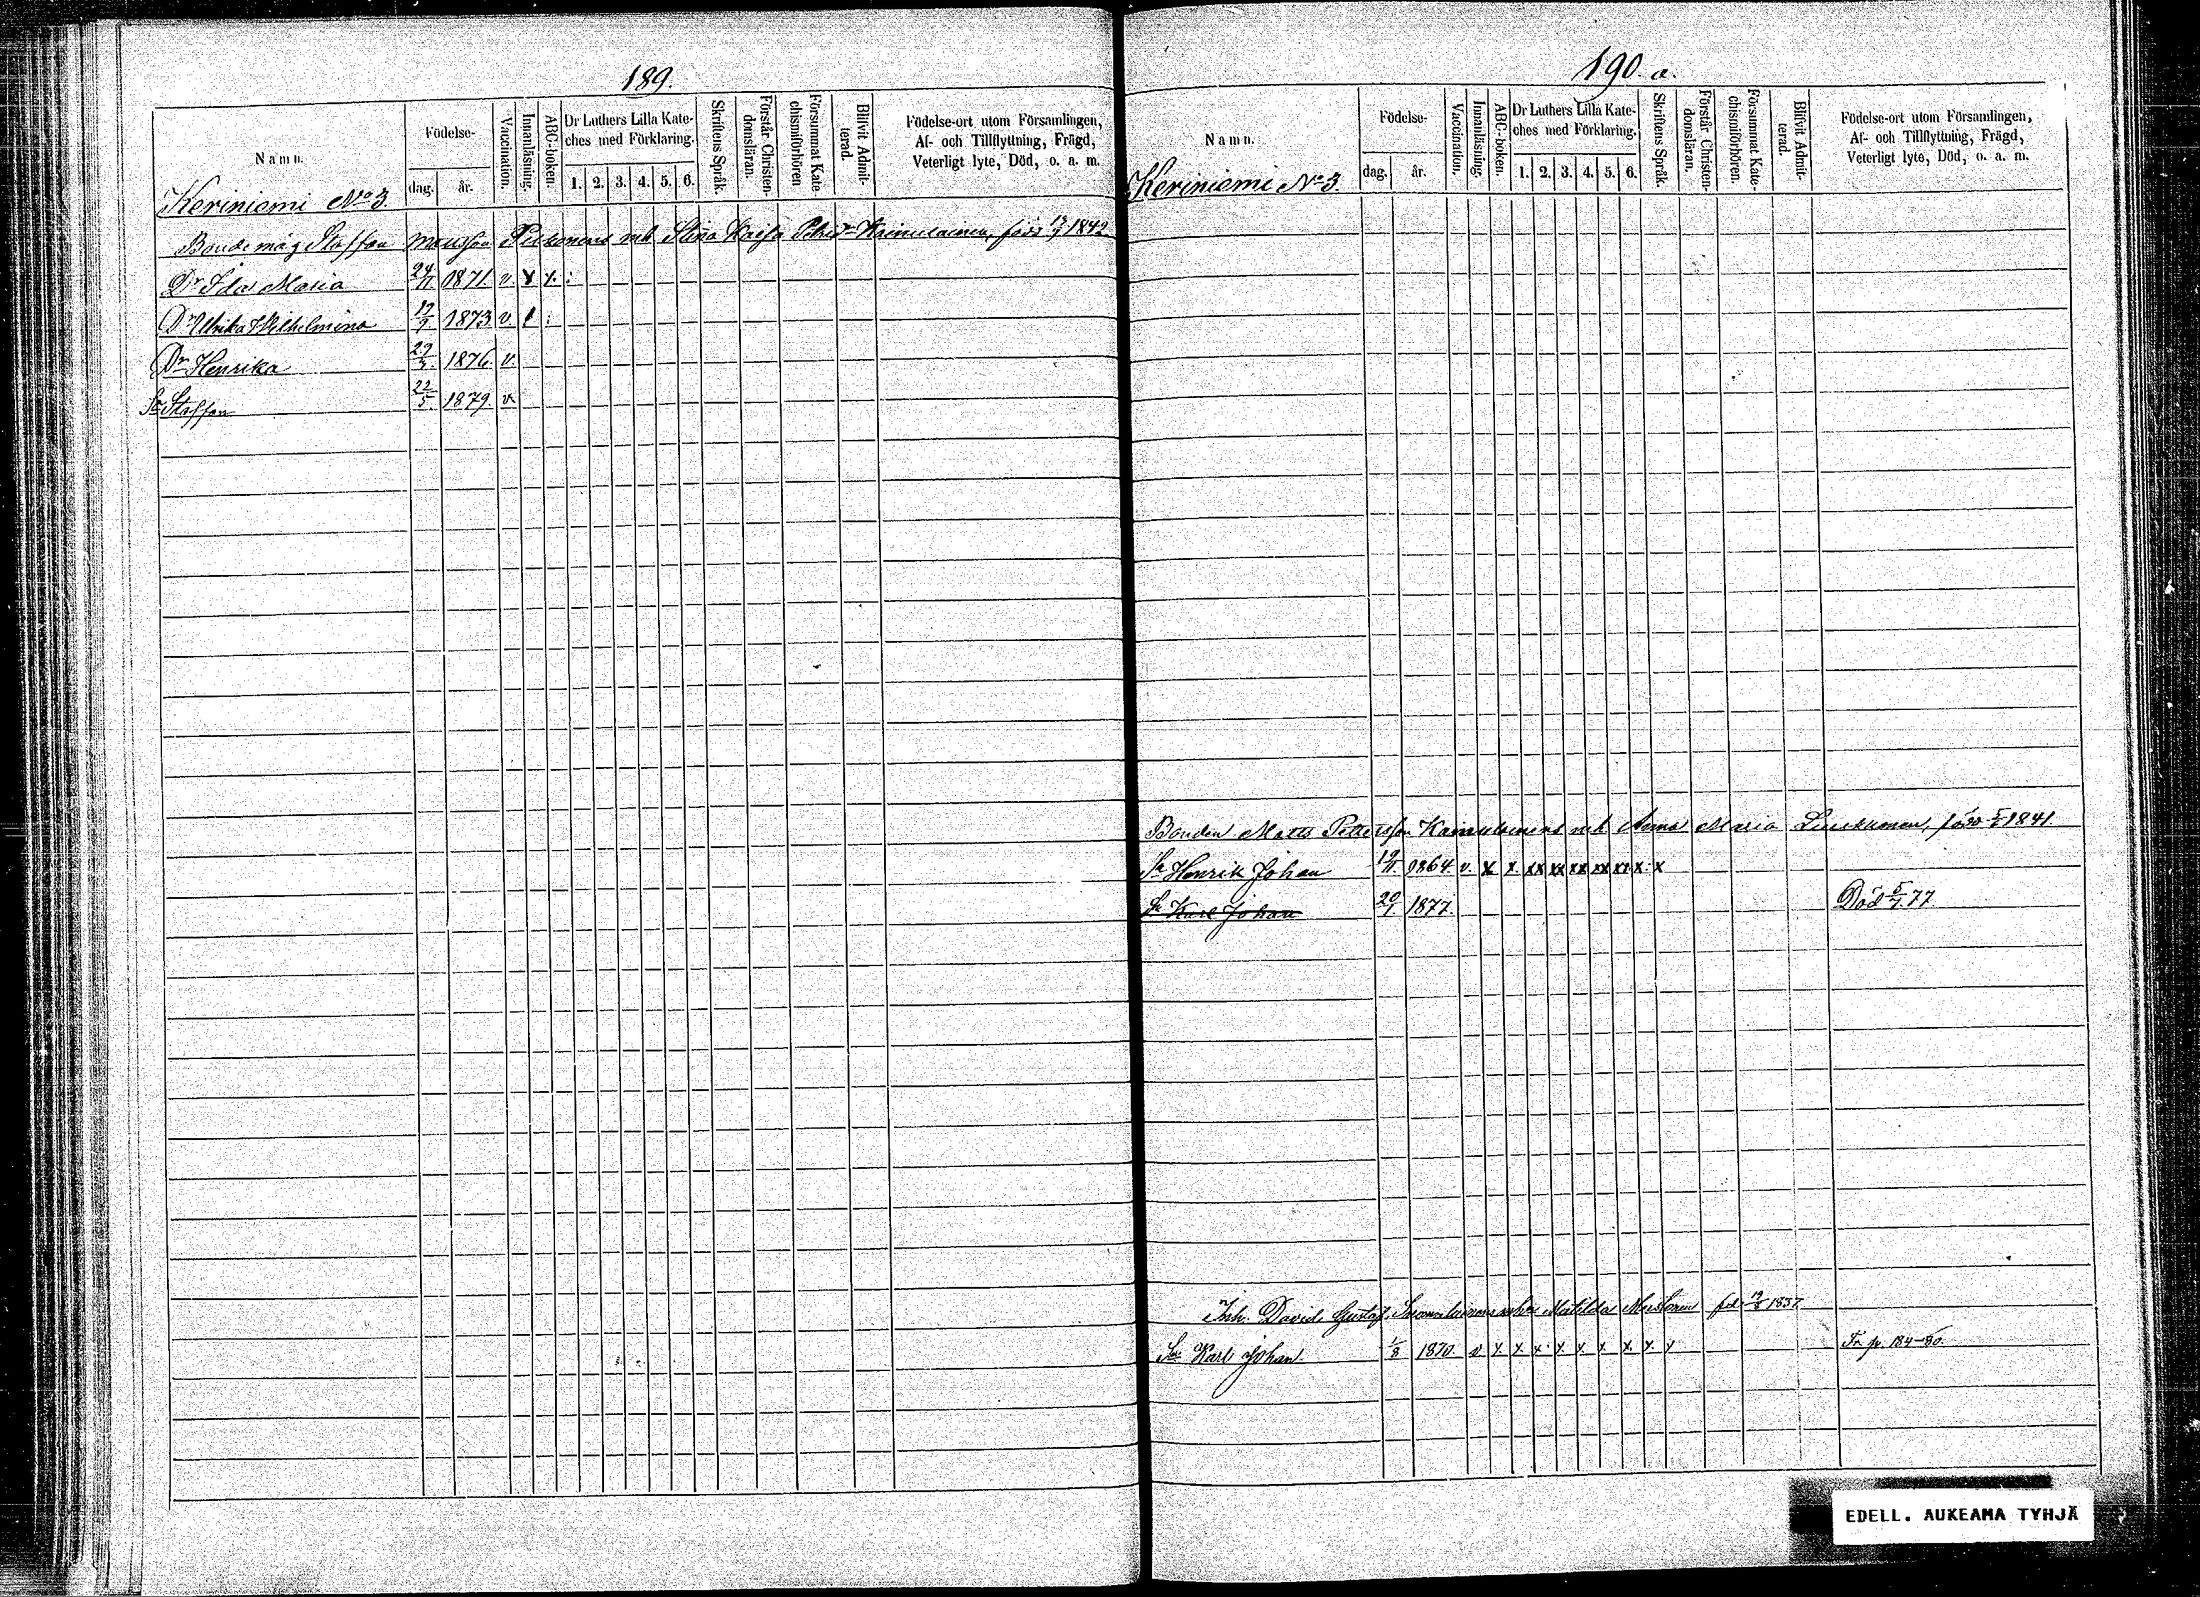 189.
Namn.
Födelse-
dag. år.
Vaccination.
Innanläsning.
ABC-boken.
Dr Luthers Lilla Kate-
ches med Förklaring.
1. 2. 3. 4. 5. 6.
Skriftens Språk.
Förstår Christen-
domsläran.
Försummat Kate
chismiförhören
Blifvit Admit-
terad.
Födelse-ort utom Församlingen,
Af- och Tillflyttning, Frägd,
Veterligt lyte, Död, o. a. m.
Keriniemi No 3.
Bonde måg Staffan Mauson Pitkonens m h Stina Kaisa Petrid:r Kainulainen, född 13/7 1842
Dr Ida Maria 24/11 1871. v x x. :
Dr Ulrika Wilhelmina 12/9 1873. v. :
Dr Henrika 1876. v.
Sn Staffan 22/5. 1879 v.
190. a.
Namn.
Födelse-
dag. år.
Vaccination.
Innanläsning.
ABC-boken.
Dr Luthers Lilla Kate-
ches med Förklaring.
1. 2. 3. 4. 5. 6.
Skriftens Språk.
Förstår Christen-
domsläran.
Försummat Kate-
chismiförhören.
Blifvit Admit-
terad.
Födelse-ort utom Församlingen,
Af- och Tillflyttning, Frägd,
Veterligt lyte, Död, o. a. m.
Keriniemi No 3.
Bonden Matts Petterson Kainulainens m h Anna Maria 1841
Sn Henrik Johan 19/11 1864. v. x x. xx xx xx xx xx x: x
Sn Karl Johan 20/1 1877. Död 5/7 77
Inh. David Gustaf Matilda fd 19/8 1837.
Sn Karl Johan. 1/8 1870 v x. x. x. x. x. x. x. x. x Fr p. 184-80.
EDELL. AUKEAMA TYHJÄ